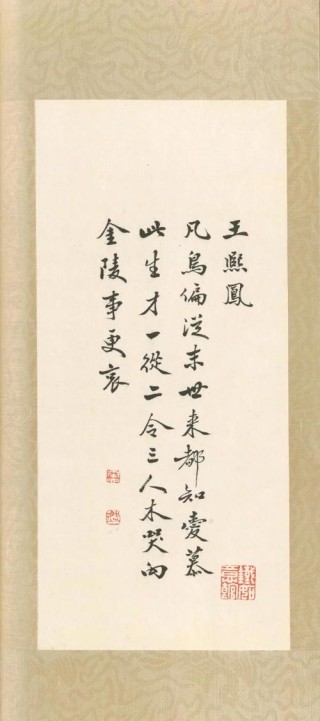 王熙鳳
凡鳥偏從末世来都知愛慕
此生才一從二令三人木哭向
金陵事更哀